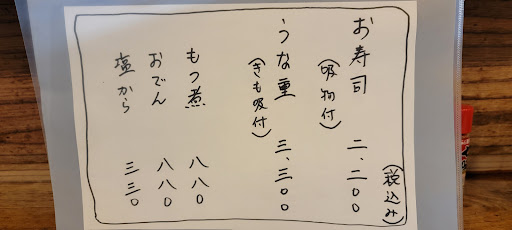 (税込み)
お寿司 二、二〇〇
(吸物付)
うな重 三、三〇〇
(きも吸付)
もつ煮 八八〇
おでん 八八〇
塩から 三三〇